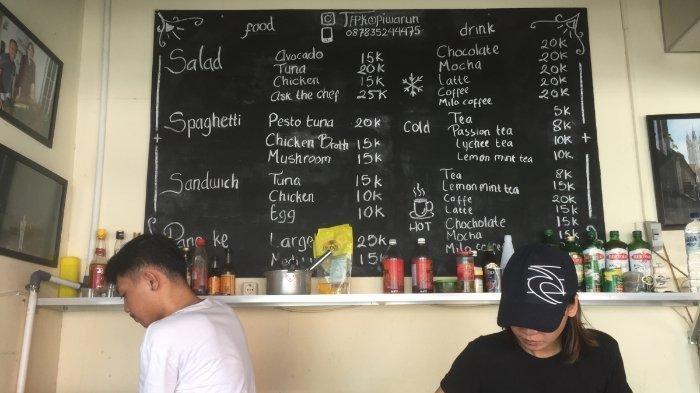 food
drink
087835244475
Salad
Avocado 15K
Tuna 20K
Chicken 15K
Ask the chef 25K
Spaghetti
Pesto tuna 20K
Chicken Broth 15K
Mushroom 15K
Sandwich
Tuna 15K
Chicken 10K
Egg 10K
Large 25K
15K
Chocolate 20K
Mocha 20K
Latte 20K
Coffee 20K
Milo coffee
Cold
Tea 5K
Passion tea 8K
Lychee tea 10K
Lemon mint tea 10K
HOT
Tea 8K
Lemon mint tea 15K
Coffe 20K
Latte 15K
Chocholate 15K
Mocha 15K
Milo coffee